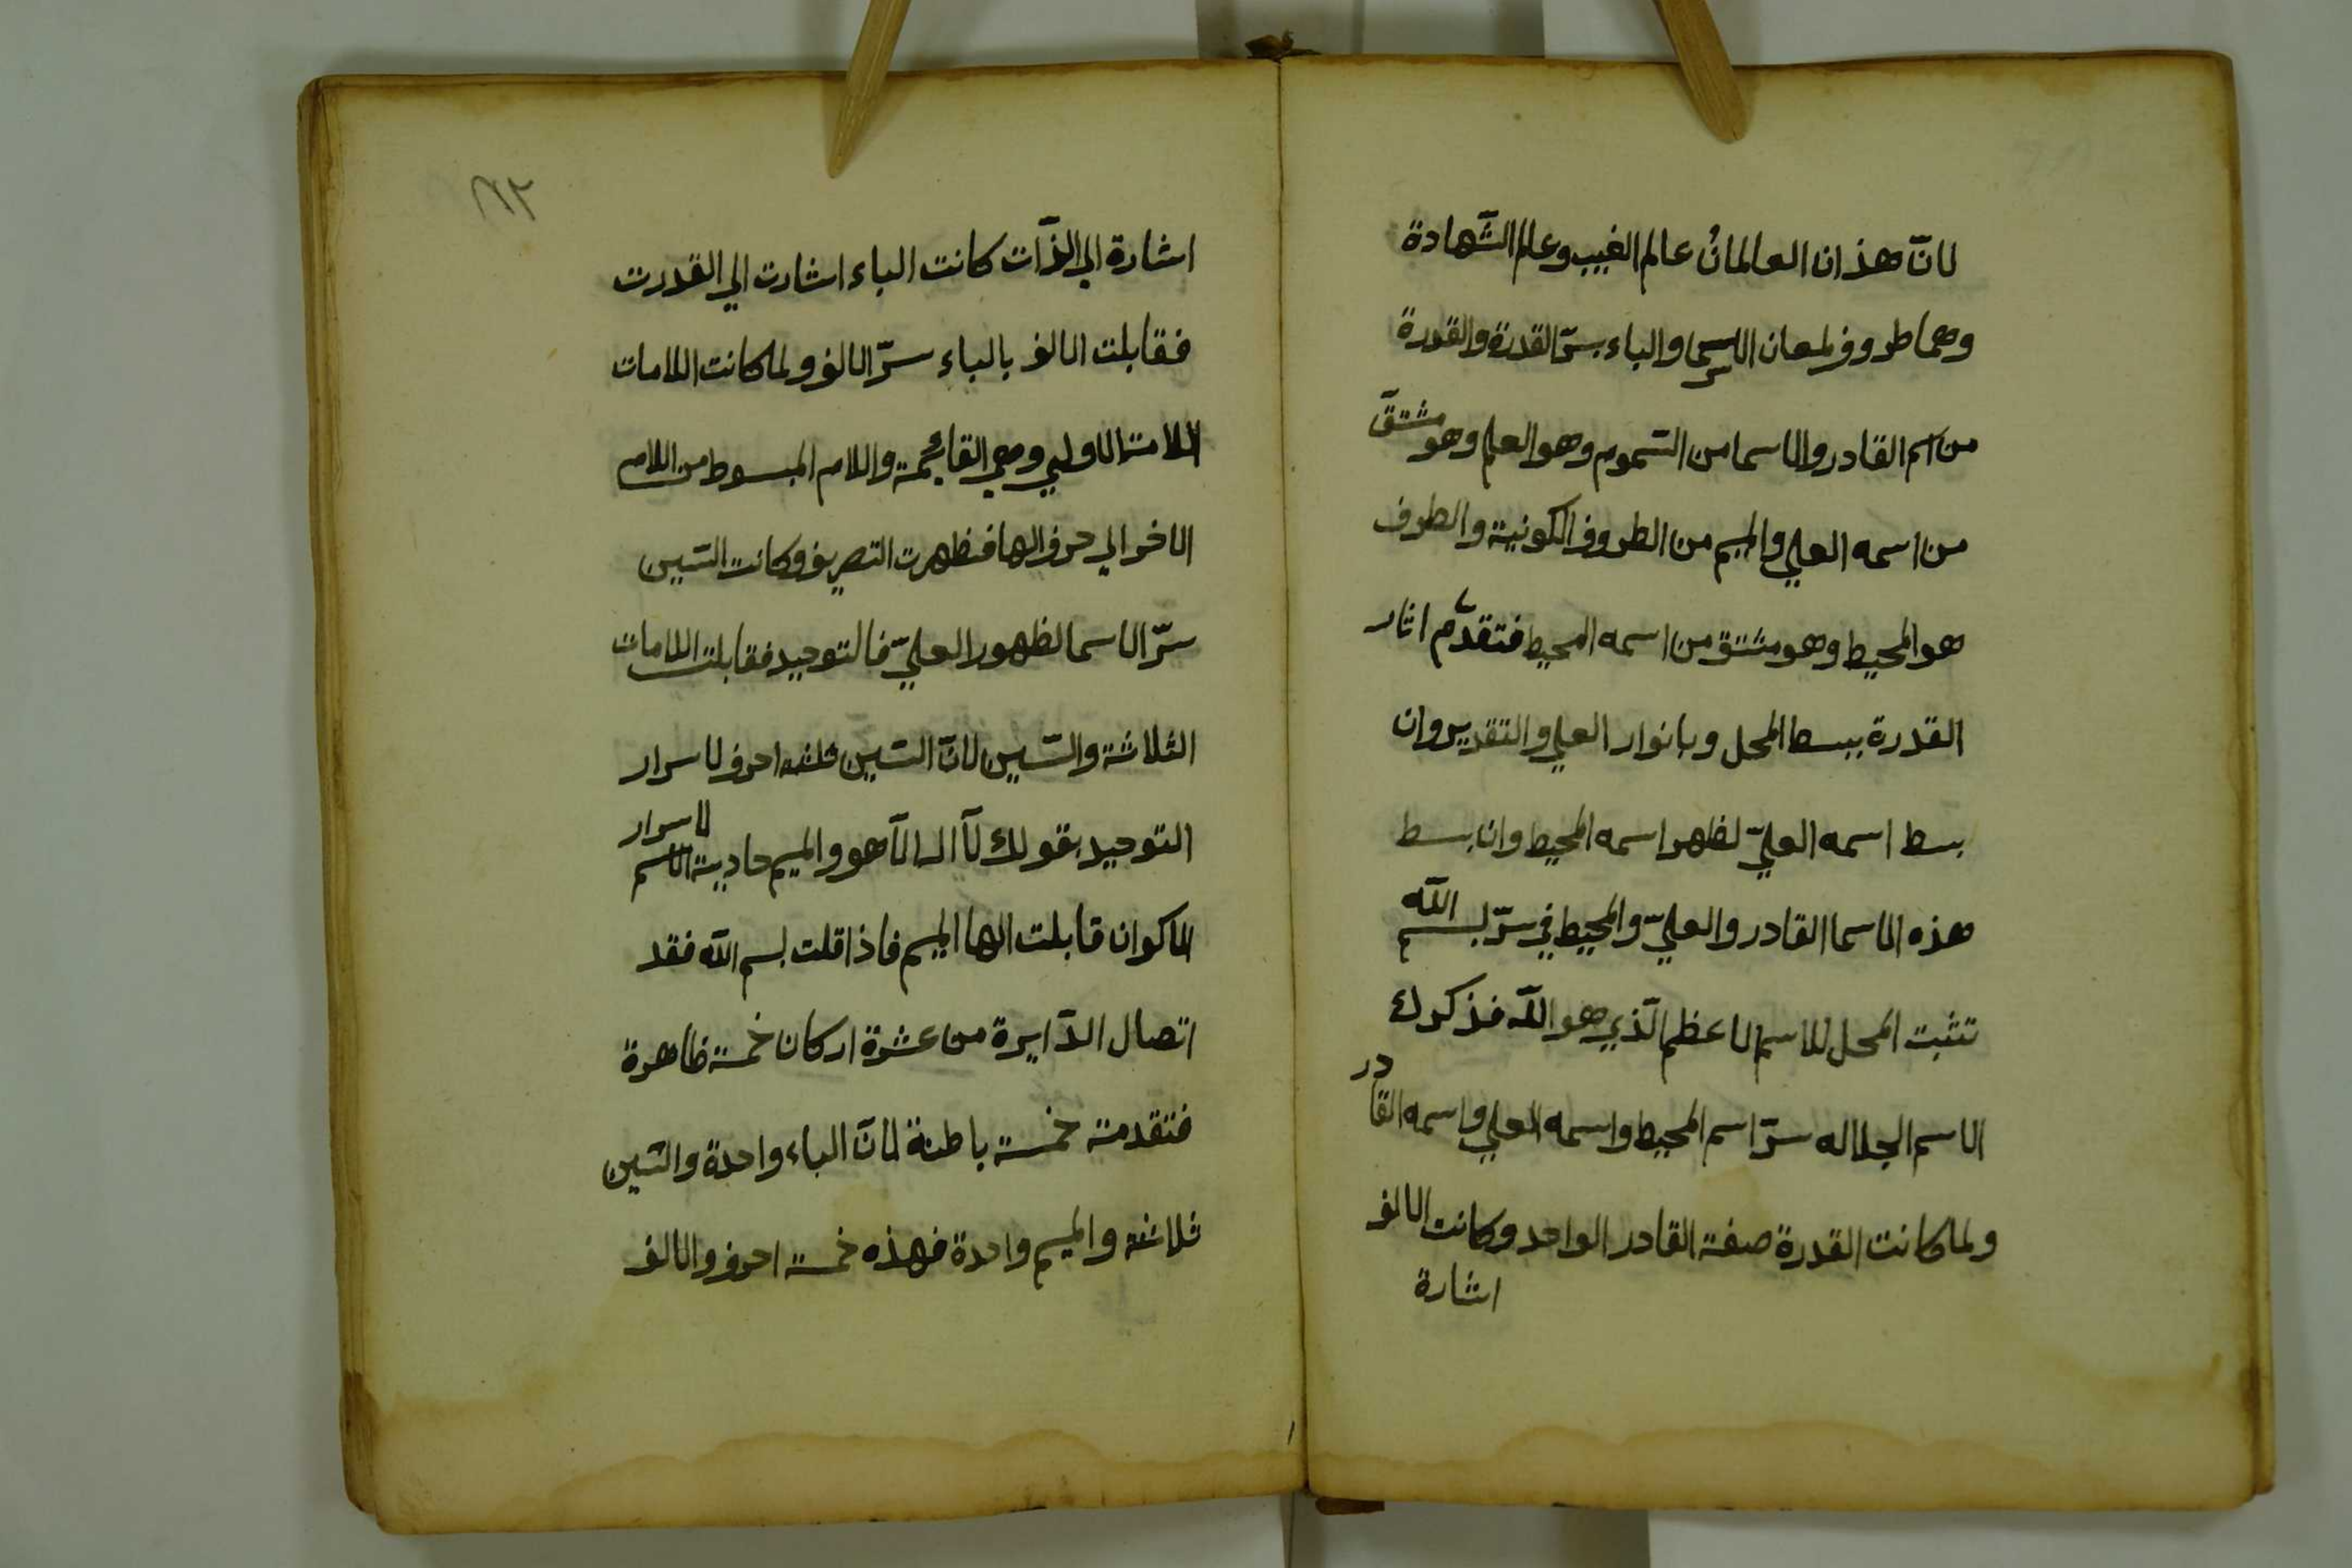 لانّ هذان العالمانُ عالم الغيب وعالم الشّهادة
وهما طروف لمعان الاسما والباء سرّ القدرة والقدرة
من اسم القادر والاسما من السّموم وهو العلي وهو مشتقّ
من اسمه العلي والميم من الطروف الكونية والطرف
هو المحيط وهو مشتق من اسمه المحيط فتقدّم اثار
القدرة ببسط المحل وبانوار العلي والتقدير وان
بسط اسمه العليّ لظهر اسمه المحيط وان بسط
هذه الاسما القادر والعليّ والمحيط في سرّ بسم اللّه
تثبت المحل للاسم الاعظم الّذي هو اللّه فذكرك
الاسم الجلاله سرّ اسم المحيط واسمه العلي واسمه القادر
ولما كانت القدرة صفة القادر الواحد وكانت الالف
اشارة
٨٢
اشارة الي الذّات كانت الباء اشارت الي القدرت
فقابلت الالف بالباء سرّ الالف ولما كانت اللامات
اللامت الاولي وهي القائمة واللام المبسوط من اللام
الاخر الي حرف الها فظهرت التصريف وكانت السّين
سرّ الاسما لظهور العليّ فالتوحيد فقابلت اللامات
الثلاثة والسّين لانّ السّين ثلثه احرف لاسرار
التوحيد بقولك لآ اله الّا هو والميم حاديية الاسم لاسرار
الاكوان قابلت الها الميم فاذا قلت بسم اللّه فقد
اتصال الدّايرة من عشرة اركان خمسة ظاهرة
فتقدمة خمسة باطنة لانّ الباء واحدة والسّين
ثلاثه والميم واحدة فهذه خمسة احرف والالف